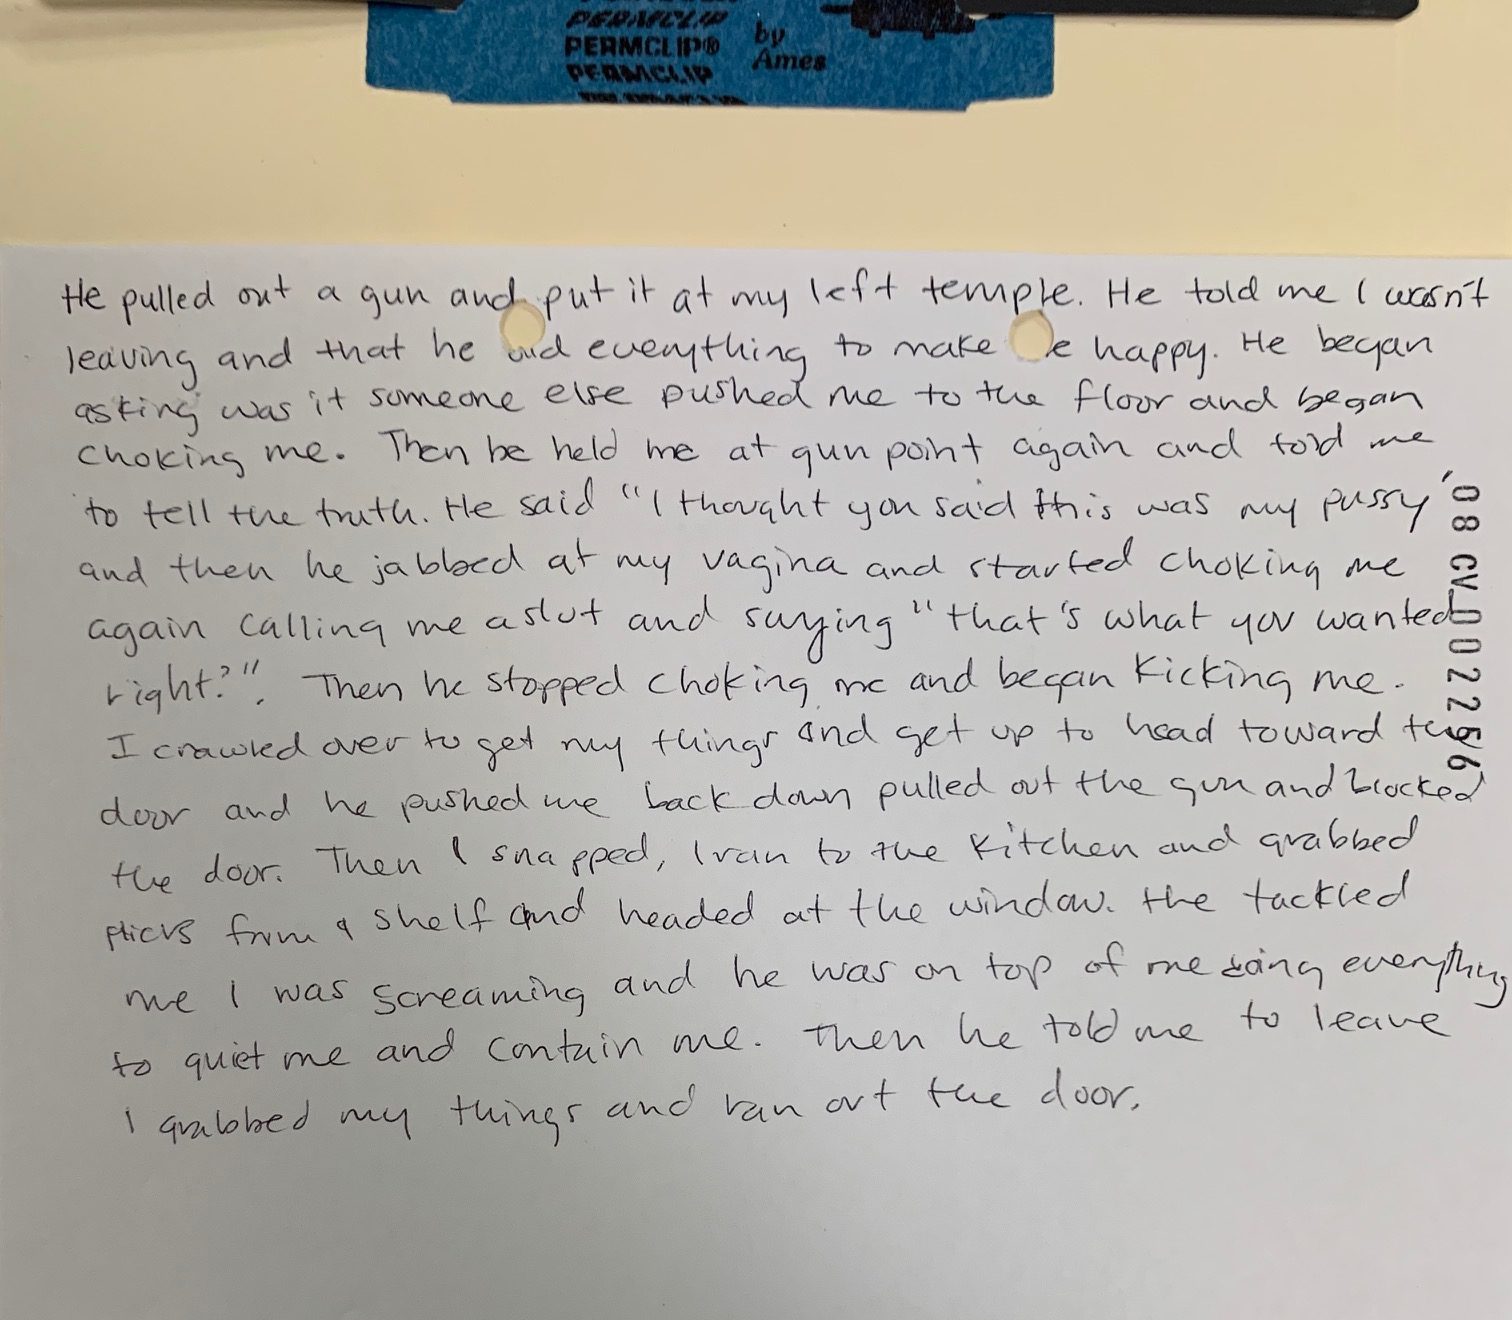 PERMCLIP
PERMCLIP® by
PERMCLIP Ames
He pulled out a gun and put it at my left temple. He told me I wasn't
leaving and that he did everything to make e happy. He began
asking was it someone else pushed me to the floor and began
choking me. Then he held me at gun point again and told me
to tell the truth. He said "I thought you said this was my pussy"
and then he jabbed at my vagina and started choking me
again calling me a slut and saying "that's what you wanted
right?". Then he stopped choking me and began kicking me.
I crawled over to get my things and get up to head toward the
door and he pushed me back down pulled out the gun and blocked
the door. Then I snapped, I ran to the kitchen and grabbed
pliers from a shelf and headed at the window. the tackled
me I was screaming and he was on top of me doing everything
to quiet me and contain me. Then he told me to leave
I grabbed my things and ran out the door.
08 CV 002256